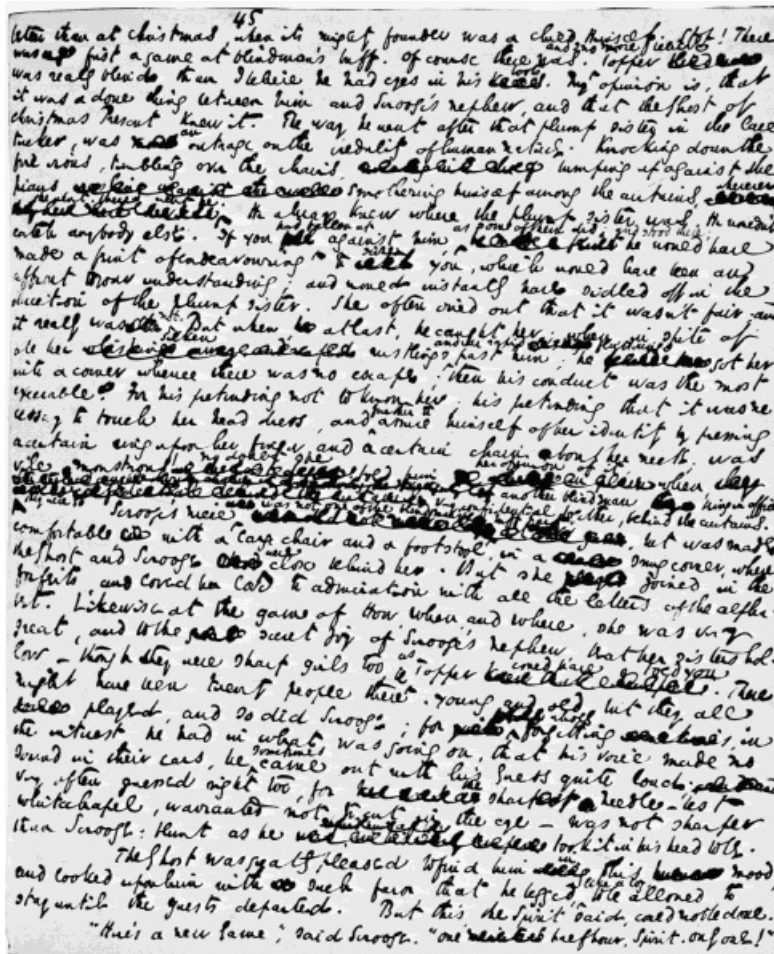 45
better than at Christmas, when its mighty founder was a child himself. Stop! There
was first a game at blindman's buff. Of course there was. And I no more believe Topper
was really blind than I believe he had eyes in his boots. My opinion is, that
it was a done thing between him and Scrooge's nephew, and that the Ghost of
Christmas Present knew it. The way he went after that plump sister in the lace
tucker, was an outrage on the credulity of human nature. Knocking down the
fire irons, tumbling over the chairs, bumping up against the
piano, smothering himself among the curtains, wherever
she went, there went he. He always knew where the plump sister was. He wouldn't
catch anybody else. If you had fallen up against him, as some of them did, and stood there, he would have
made a feint of endeavouring to seize you, which would have been an
affront to your understanding; and would instantly have sidled off in the
direction of the plump sister. She often cried out that it wasn't fair; and
it really was not. But when at last, he caught her; when, in spite of
all her silken rustlings, and her rapid flutterings past him, he got her
into a corner whence there was no escape; then his conduct was the most
execrable. For his pretending not to know her; his pretending that it was ne
cessary to touch her head dress, and further to assure himself of her identity by pressing
a certain ring upon her finger, and a certain chain about her neck; was
vile, monstrous! No doubt she told him her opinion of it, when
another blind man being in office,
they were so very confidential together, behind the curtains.
Scrooge's niece was not one of the blindman's buff party, but was made
comfortable with a large chair and a footstool, in a snug corner, where
the Ghost and Scrooge were close behind her. But she joined in the
forfeits, and loved her love to admiration with all the letters of the alpha
bet. Likewise at the game of How, when, and where, she was very
great, and to the secret joy of Scrooge's nephew, beat her sisters hol
low - though they were sharp girls too, as Topper could have told you. There
might have been twenty people there, young and old, but they all
played, and so did Scrooge; for, wholly forgetting in
the interest he had in what was going on, that his voice made no
sound in their ears, he sometimes came out with his guess quite loud,
very often guessed right too; for the sharpest needle - best
Whitechapel, warranted not to cut in the eye - was not sharper
than Scrooge: blunt as he took it in his head to be.
The Ghost was greatly pleased to find him in this mood
and looked upon him with such favor that he begged like a boy to be allowed to
stay until the guests departed. But this the Spirit said, could not be done.
"Here's a new Game," said Scrooge. "One half hour, Spirit, only one!"